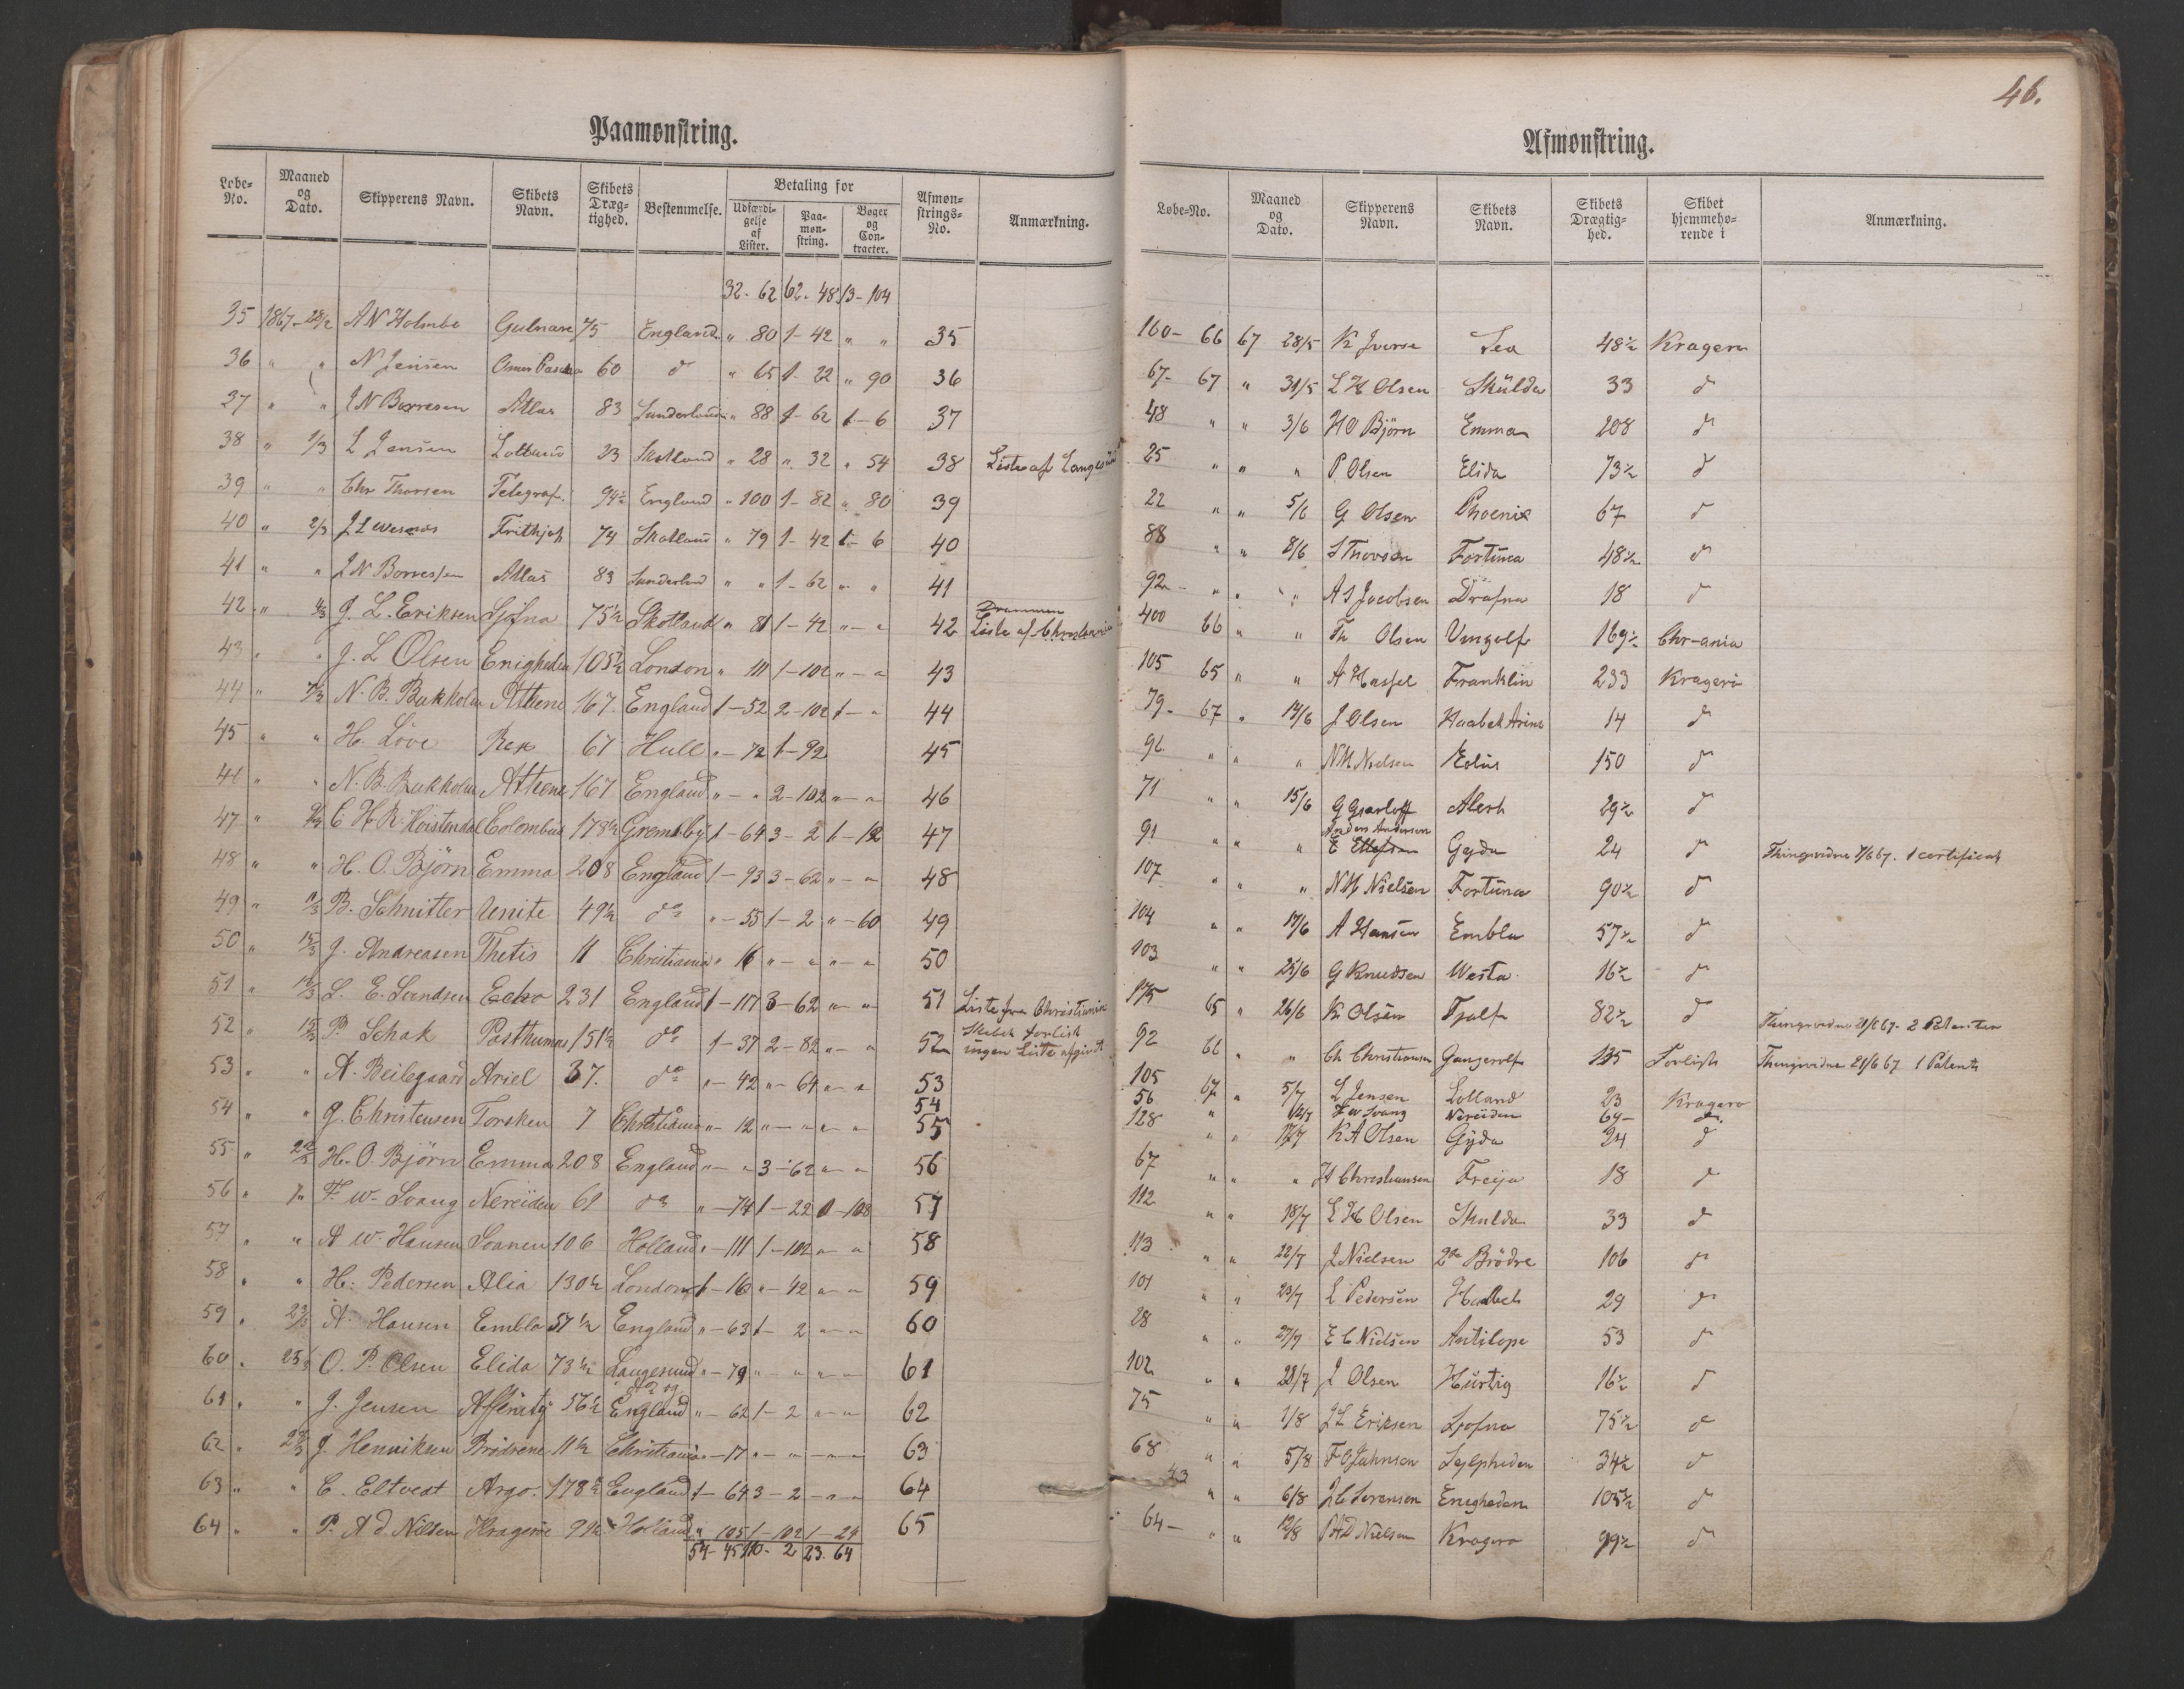 46.
Paamønstring.
Løbe-No. Maaned og Dato. Skipperens Navn. Skibets Navn. Skibets Dræg-tighed. Bestemmelse. Betaling for Udfærdi-gelse af Lister. Paa-møn-string. Bøger og Con-tracter. Afmøn-strings-No. Anmærkning.
32. 62 62. 48 13 - 104
35 1867 - 28/2 A N Holmbe Gulnare 75 England " 80 1 - 42 " " 35
36 " " N Jensen Omer Pascha 60 do " 65 1 - 22 " 90 36
37 " " J N Borresen Atlas 83 Sunderland " 88 1 - 62 1 - 6 37
38 " 1/3 L Jensen Lolland 23 Skotland " 28 " 32 " 54 38 Liste af Langesund
39 " " Chr Thorsen Telegraf 94½ England " 100 1 - 82 " 80 39
40 " 2/3 Frithjoh 74 Skotland " 79 1 - 42 1 - 6 40
41 " " J N Borressen Atlas 83 Sunderland " " 1 - 62 " " 41
42 " J. L. Eriksen Sjofna 75½ Skotland " 81 1 - 42 " - " 42 Drammen Liste af Christiania
43 " " J. L Olsen Enigheden 105½ London " 111 1 - 102 " - " 43
44 " 7/3 N. B. Bakholm Athene 167 England 1 - 52 2 - 102 1 - " 44
45 " " H. Löve Rex 67 Hull " - 72 1 - 92 45
46 " " N. B. Bakholm Athene 167 England " - " 2 - 102 " - " 46
47 " C. H. R. Hoistendal Colombus 178½ Gremsby 1 - 64 3 - 2 1 - 12 47
48 " " H. O. Björn Emma 208 England 1 - 93 3 - 62 " - " 48
49 " B. Schnitler Unite 49½ do " - 55 1 - 2 " - 60 49
50 " 15/3 J. Andreasen Thetis 11 Christiania " 16 " - " " - " 50
51 " L. E. Svendsen Echo 231 England 1 - 117 3 - 62 " - " 51 Liste fra Christiania
52 " P. Schak Posthumus 151½ do 1 - 37 2 - 82 " - " 52 Skibet forlist ingen Liste afgivet
53 " " A. Beilegaard Ariel 37. do " - 42 " - 64 " - " 53
54
54 " " G. Christensen Torsken 7 Christiania " - 12 " - " " - " 55
55 " H. O. Björn Emma 208 England " - " 3 - 62 " - " 56
56 " F. W. Svang Nereiden 69 do " - 74 1 - 22 0 - 108 57
57 " " A W. Hansen Svanen 106 Holland " - 111 1 - 102 " - " 58
58 " " H. Pedersen Alia 130½ London 1 - 16 " - 42 " - " 59
59 " 23/3 A. Hansen Embla 57½ England " - 63 1 - 2 " - " 60
60 " 25/3 O. P. Olsen Elida 73½ Langesund " - 79 " - " " - " 61
61 " " J. Jensen Affinity 56½ England " - 62 1 - 2 " - " 62
62 " J. Henriksen Brödrene 11½ Christiania " - 17 " - " " - " 63
63 " " C. Eltvedt Argo. 178½ England 1 - 64 3 - 2 - " - " 64
64 " " P. A d. Nilsen Kragerøe 99½ Holland " 105 1 - 102 1 - 24 65
54 - 45 110 - 2 23. 64
Afmønstring.
Løbe-No. Maaned og Dato. Skipperens Navn. Skibets Navn. Skibets Drægtig-hed. Skibet hjemmehø-rende i Anmærkning.
160 - 66 67 28/5 K Iverse Lea 48½ Kragerø
67 - 67 " 31/5 L H Olsen Skulda 33 do
48 " " 3/6 H O Björn Emma 208 do
25 " " " P. Olsen Elida 73½ do
22 " " 5/6 G Olsen Phoenix 67 do
88 " " 8/6 S Thorsen Fortuna 48½ do
92 " " " A S Jacobsen Drafna 18 do
400 66 " " Th Olsen Vingolf 169½ Chr-ania
105 65 " " A Hassel Franklin 233 Kragerö
79 - 67 " 14/6 J Olsen Haabet Arine 14 do
96 " " " N M Nielsen Eolus 150 do
71 " " 15/6 G Gjerløff Alert 29½ do
91 " " " Anders Andersen E Ellefsen Gyda 24 do Thingsvidne 7/6 67. 1 certificat
107 " " " N M Nielsen Fortuna 90½ do
104 " " 17/6 A Hansen Embla 57½ do
103 " " 25/6 G Knudsen Westa 16½ do
175 65 " 26/6 K. Olsen Tjalf 82½ do Thingsvidne 21/6 67. 2 Patenter
92 66 " " Ch Christiansen Gangerolf 135 Forlist Thingsvidne 21/6 67 1 Patent
105 67 " 5/7 L Jensen Lolland 23 Kragerø
56 " 12/7 F W Svang Nereiden 69 do
128 " " 17/7 K A Olsen Gyda 24 do
67 " " " H Christiansen Freija 18 do
112 " " 18/7 L H Olsen Skulda 33 do
113 " " 22/7 J Nielsen 2de Brödre 106 do
101 " " 23/7 L Pedersen Haabet 29 do
28 " " 27/7 E C Nielsen Antilope 53 do
102 " " 28/7 J Olsen Hurtig 16½ do
75 " " 1/8 J L Eriksen Sjofna 75½ do
68 " " 5/8 F O Jahnsen Sylpheden 34½ do
43 " " 6/8 J C Sorensen Enigheden 105½ do
64 - " " 12/8 P A D Nielsen Kragerø 99½ do